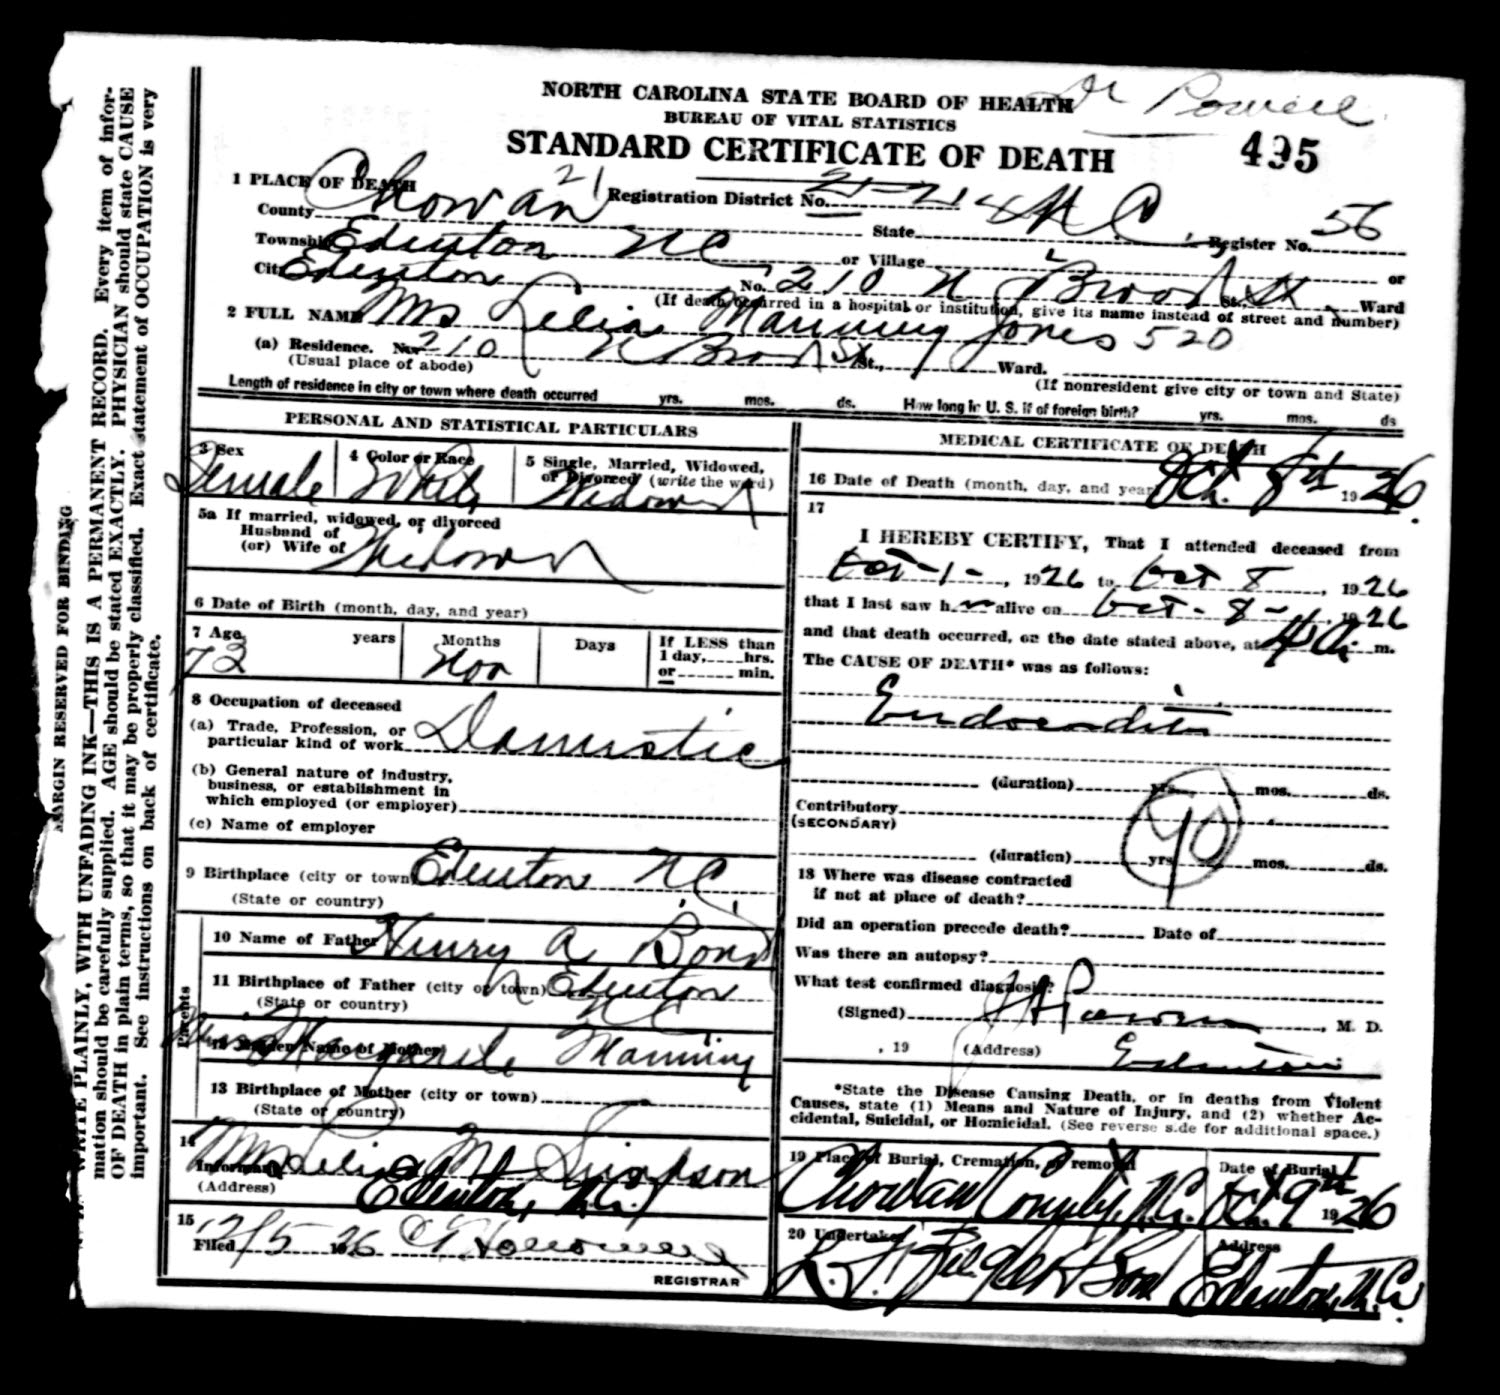 NORTH CAROLINA STATE BOARD OF HEALTH
Dr Powell
BUREAU OF VITAL STATISTICS
STANDARD CERTIFICATE OF DEATH 495
1 PLACE OF DEATH
County Chowan 21 Registration District No. 21-214 State N C Register No. 56
Township Edenton NC or Village or
City Edenton No. 210 N Broad St. St Ward
(If death occurred in a hospital or institution, give its name instead of street and number)
2 FULL NAME Mrs Lelia Manning Jones 520
(a) Residence. No. 210 N Broad St St., Ward.
(Usual place of abode) (If nonresident give city or town and State)
Length of residence in city or town where death occurred yrs. mos. ds. How long in U. S. if of foreign birth? yrs. mos. ds
PERSONAL AND STATISTICAL PARTICULARS
3 Sex 4 Color or Race 5 Single, Married, Widowed, or Divorced (write the word)
Female White Widowed
5a If married, widowed, or divorced
Husband of
(or) Wife of Widowed
6 Date of Birth (month, day, and year)
7 Age years Months Days If LESS than
1 day, hrs.
or min.
73 Nov
8 Occupation of deceased
(a) Trade, Profession, or
particular kind of work Domestic
(b) General nature of industry,
business, or establishment in
which employed (or employer)
(c) Name of employer
9 Birthplace (city or town) Edenton N C
(State or country)
Parents
10 Name of Father Henry A Bond
11 Birthplace of Father (city or town) Edenton
(State or country) N C
12 Maiden Name of Mother Margaret Manning
13 Birthplace of Mother (city or town)
(State or country)
14
Informant Mrs Lelia M Simpson
(Address) Edenton, N.C.
15
Filed 12/5 1926
REGISTRAR
MEDICAL CERTIFICATE OF DEATH
16 Date of Death (month, day, and year) Oct. 8th 1926.
17
I HEREBY CERTIFY, That I attended deceased from
Oct-1-, 1926 to Oct 8, 1926
that I last saw her alive on Oct-8-, 1926
and that death occurred, on the date stated above, at 4 A. m.
The CAUSE OF DEATH* was as follows:
Endocarditis
(duration) yrs. mos. ds.
Contributory
(SECONDARY)
90
(duration) yrs. mos. ds.
18 Where was disease contracted
if not at place of death?
Did an operation precede death? Date of
Was there an autopsy?
What test confirmed diagnosis?
(Signed) , M. D.
, 19 (Address) Edenton
*State the Disease Causing Death, or in deaths from Violent
Causes, state (1) Means and Nature of Injury, and (2) whether Ac-
cidental, Suicidal, or Homicidal. (See reverse side for additional space.)
19 Place of Burial, Cremation, or removal Date of Burial
Chowan County, N.C. Oct. 9th 1926
20 Undertaker Address
L. F. & Son Edenton, N.C.
MARGIN RESERVED FOR BINDING
WRITE PLAINLY, WITH UNFADING INK—THIS IS A PERMANENT RECORD. Every item of infor-
mation should be carefully supplied. AGE should be stated EXACTLY. PHYSICIAN should state CAUSE
OF DEATH in plain terms, so that it may be properly classified. Exact statement of OCCUPATION is very
important. See instructions on back of certificate.